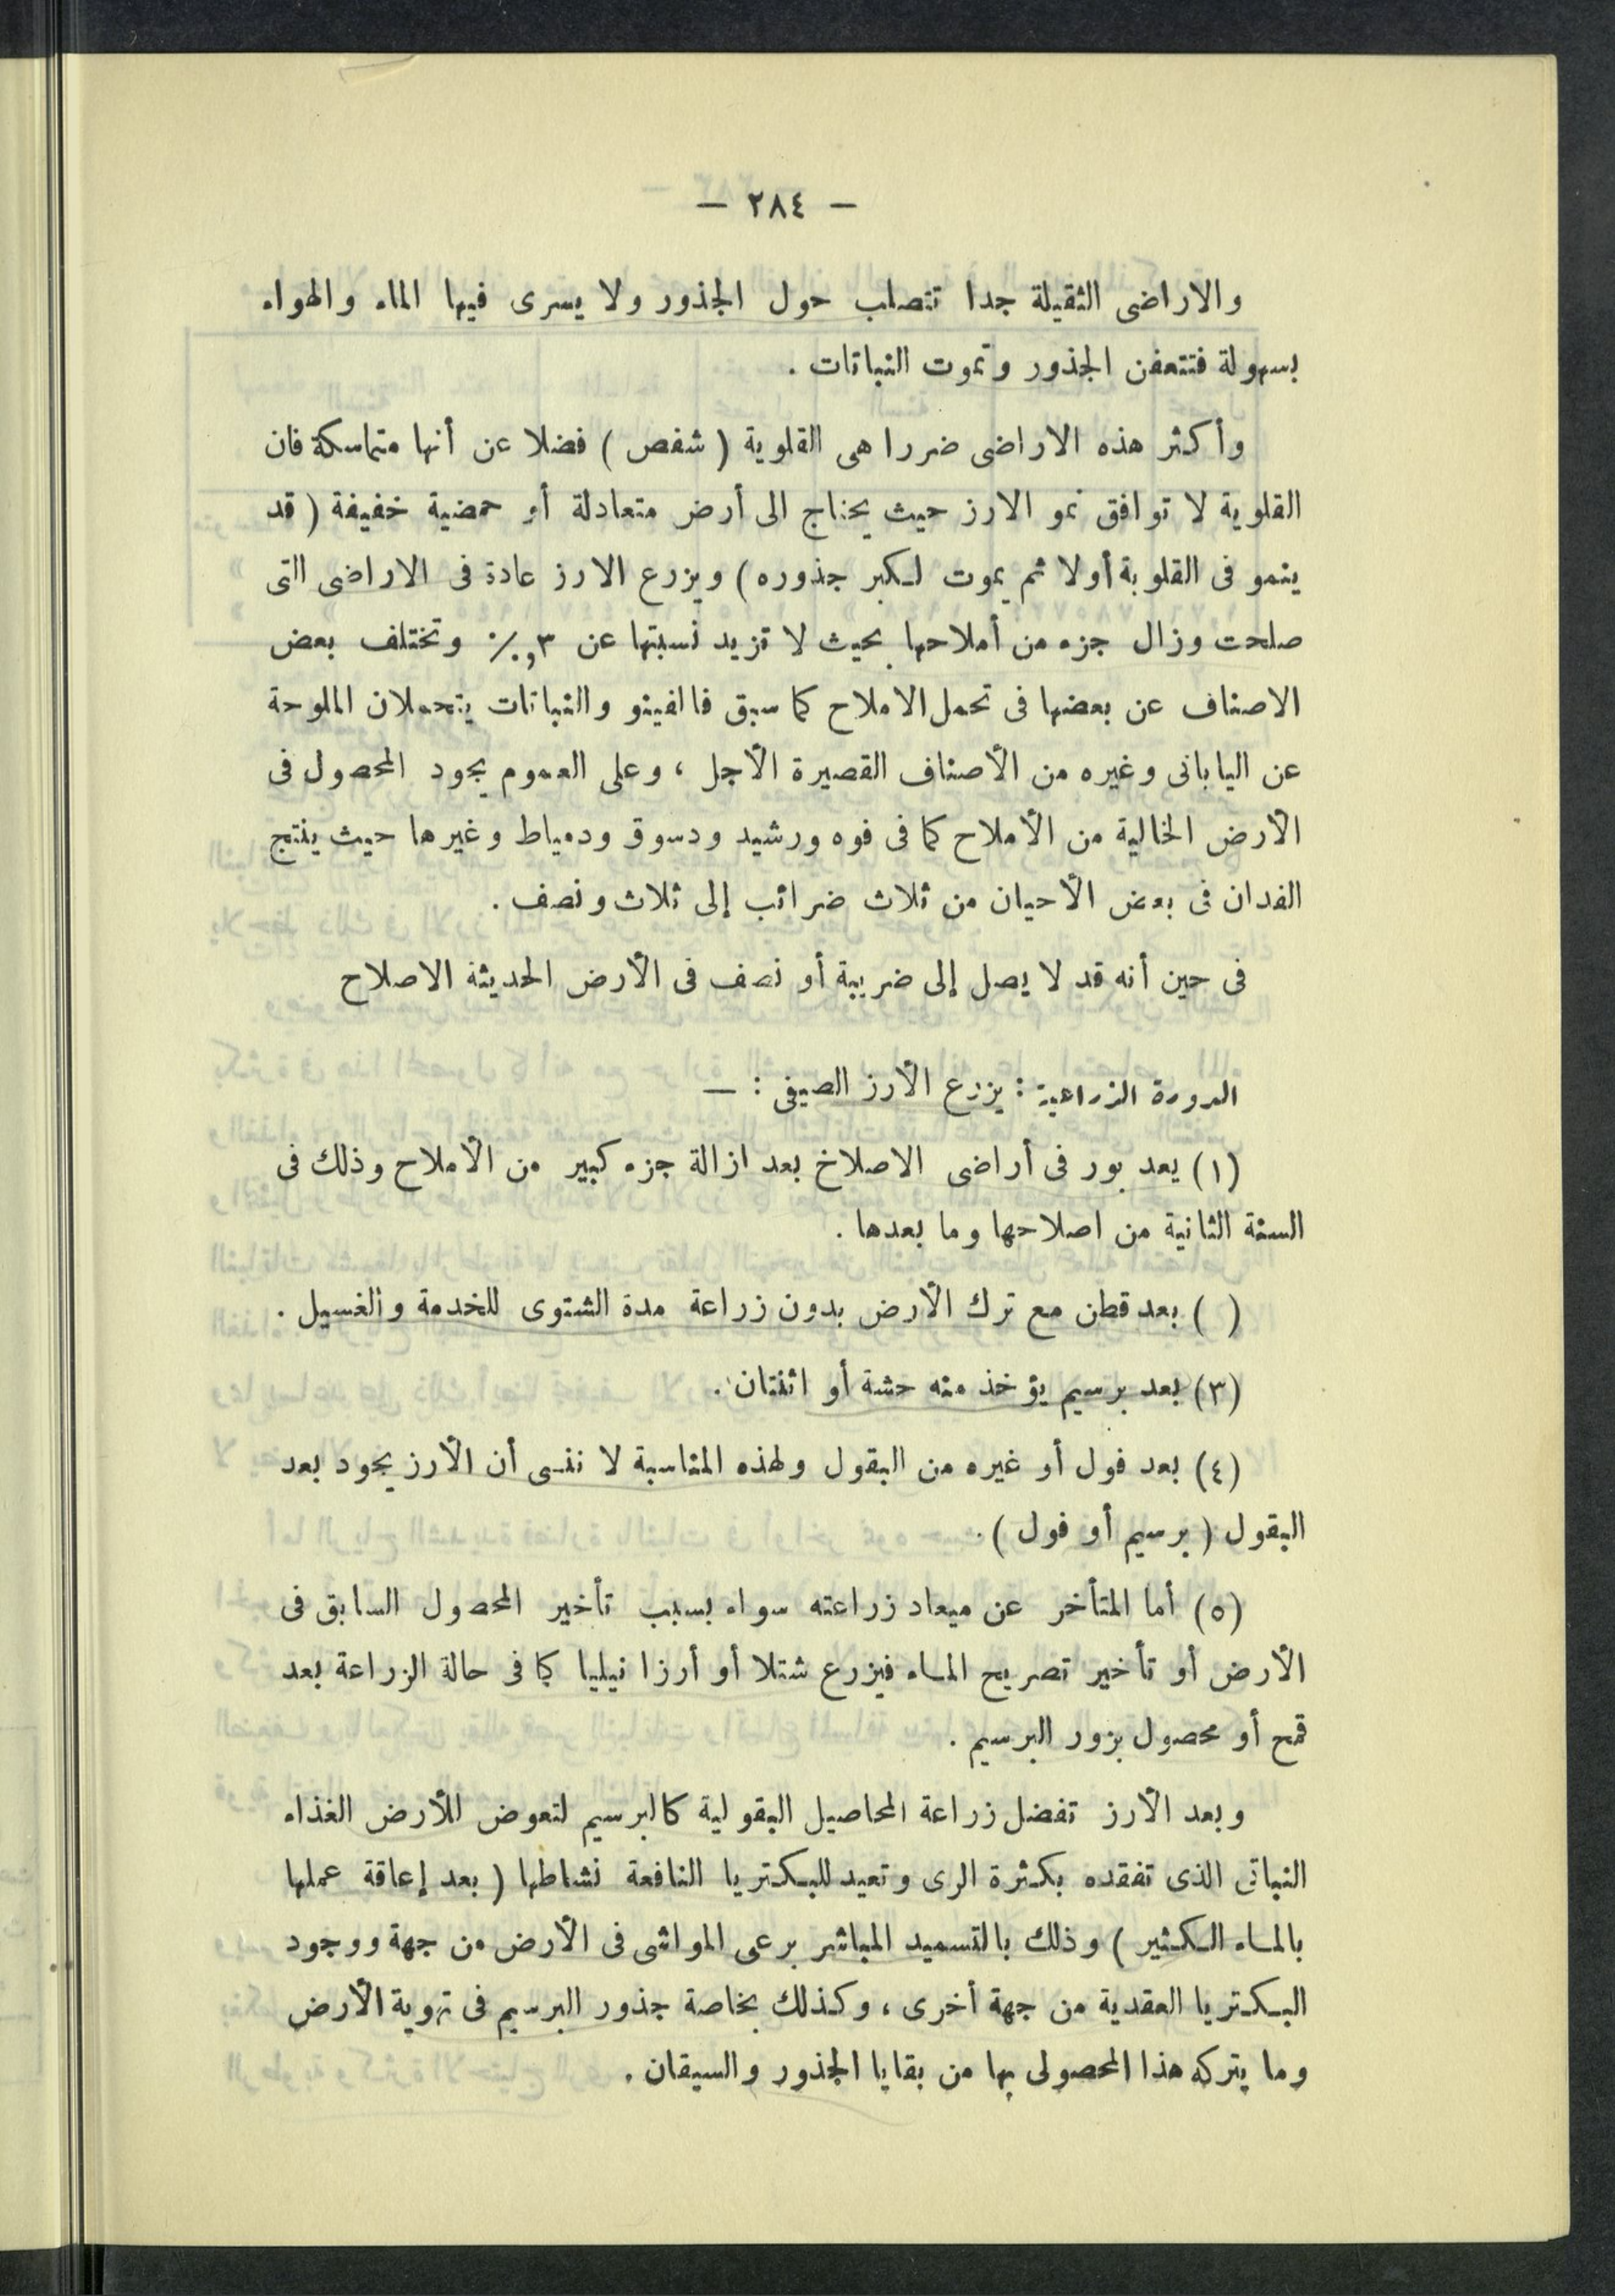 — ٢٨٤ —
والاراضى الثقيلة جدا تتصلب حول الجذور ولا يسرى فيها الماء والهواء
بسهولة فتتعفن الجذور وتموت النباتات .
وأكثر هذه الاراضى ضررا هى القلوية ( شفص ) فضلا عن أنها متماسكة فان
القلوية لا توافق نمو الارز حيث يحتاج الى أرض متعادلة أو حمضية خفيفة ( قد
ينمو فى القلوية أولا ثم يموت لكبر جذوره ) ويزرع الارز عادة فى الاراضى التى
صلحت وزال جزء من أملاحها بحيث لا تزيد نسبتها عن ٣,٠٪ وتختلف بعض
الاصناف عن بعضها فى تحمل الاملاح كما سبق فالفينو والنباتات يتحملان الملوحة
عن اليابانى وغيره من الأصناف القصيرة الأجل ، وعلى العموم يجود المحصول فى
الأرض الخالية من الأملاح كما فى فوه ورشيد ودسوق ودمياط وغيرها حيث ينتج
الفدان فى بعض الأحيان من ثلاث ضرائب إلى ثلاث ونصف .
فى حين أنه قد لا يصل إلى ضريبة أو نصف فى الأرض الحديثة الاصلاح
الدورة الزراعية : يزرع الأرز الصيفى : —
(١) يعد بور فى أراضى الاصلاخ بعد ازالة جزء كبير من الأملاح وذلك فى
السنة الثانية من اصلاحها وما بعدها .
( ) بعد قطن مع ترك الأرض بدون زراعة مدة الشتوى للخدمة والغسيل .
(٣) بعد برسيم يؤخذ منه حشة أو اثنتان .
(٤) بعد فول أو غيره من البقول ولهذه المناسبة لا ننسى أن الأرز يجود بعد
البقول ( برسيم أو فول ) .
(٥) أما المتأخر عن ميعاد زراعته سواء بسبب تأخير المحصول السابق فى
الأرض أو تأخير تصريح الماء فيزرع شتلا أو أرزا نيليا كما فى حالة الزراعة بعد
قمح أو محصول بزور البرسيم .
وبعد الأرز تفضل زراعة المحاصيل البقولية كالبرسيم لتعوض للأرض الغذاء
النباتى الذى تفقده بكثرة الرى وتعيد للبكتريا النافعة نشاطها ( بعد إعاقة عملها
بالماء الكثير ) وذلك بالتسميد المباشر برعى المواشى فى الأرض من جهة ووجود
البكتريا العقدية من جهة أخرى ، وكذلك بخاصة جذور البرسيم فى تهوية الأرض
وما يتركه هذا المحصولى بها من بقايا الجذور والسيقان .